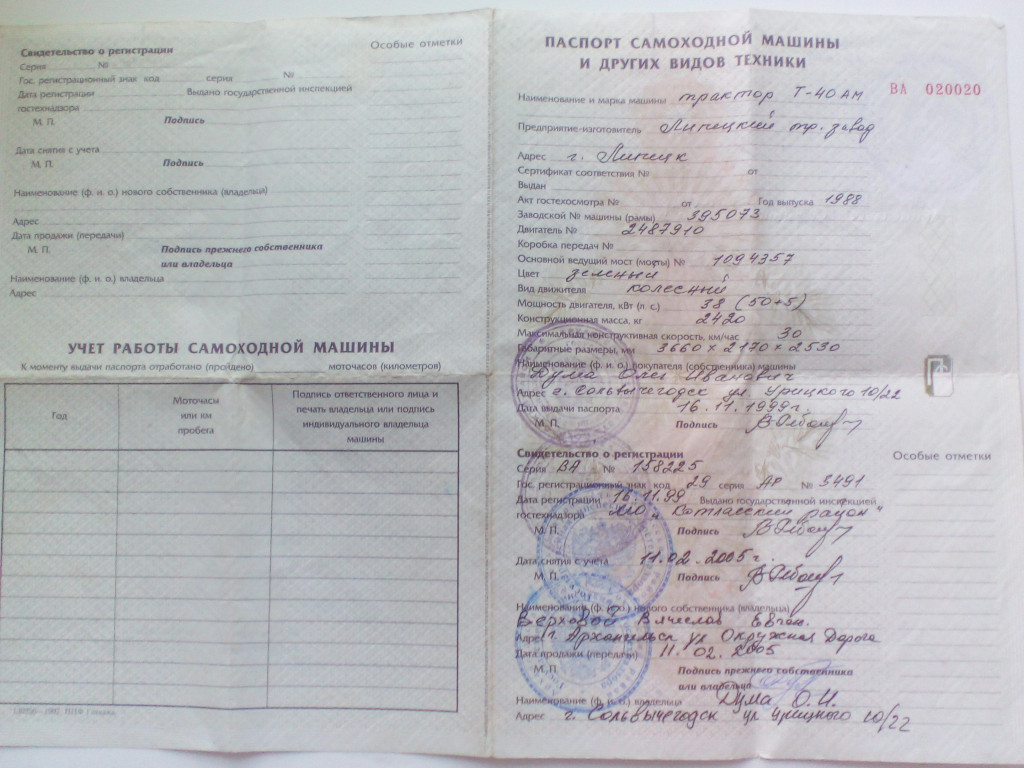 Свидетельство о регистрации
Особые отметки
Серия № 
Гос. регистрационный знак код серия №
Дата регистрации Выдано государственной инспекцией
гостехнадзора
М. П. Подпись
Дата снятия с учета
М. П. Подпись
Наименование (ф. и. о.) нового собственника (владельца)
Адрес
Дата продажи (передачи)
М. П. Подпись прежнего собственника
или владельца
Наименование (ф. и. о.) владельца
Адрес
УЧЕТ РАБОТЫ САМОХОДНОЙ МАШИНЫ
К моменту выдачи паспорта отработано (пройдено) моточасов (километров)
Год
Моточасы
или км
пробега
Подпись ответственного лица и
печать владельца или подпись
индивидуального владельца
машины
ПАСПОРТ САМОХОДНОЙ МАШИНЫ
И ДРУГИХ ВИДОВ ТЕХНИКИ
ВА 020020
Наименование и марка машины трактор Т-40АМ
Предприятие-изготовитель Липецкий тр. завод
Адрес г. Липецк
Сертификат соответствия № от
Выдан
Акт гостехосмотра № от Год выпуска 1988
Заводской № машины (рамы) 395073
Двигатель № 2487910
Коробка передач №
Основной ведущий мост (мосты) № 1094357
Цвет зеленый
Вид движителя колесный
Мощность двигателя, кВт (л. с.) 38 (50+5)
Конструкционная масса, кг 2420
Максимальная конструктивная скорость, км/час 30
Габаритные размеры, мм 3660 x 2170 x 2530
Наименование (ф. и. о.) покупателя (собственника) машины
Дума Олег Иванович
Адрес г. Сольвычегодск ул Урицкого 10/22
Дата выдачи паспорта 16.11.1999г.
М. П. Подпись
Свидетельство о регистрации
Особые отметки
Серия ВА № 158225
Гос. регистрационный знак код 29 серия АР № 3491
Дата регистрации 16.11.99 Выдано государственной инспекцией
гостехнадзора МО "Котласский район"
М. П. Подпись
Дата снятия с учета 11.02.2005г.
М. П. Подпись
Наименование (ф. и. о.) нового собственника (владельца)
Верховой Вячеслав Евген.
Адрес г. Архангельск ул Окружная Дорога
Дата продажи (передачи) 11.02.2005
М. П. Подпись прежнего собственника
или владельца
Наименование (ф. и. о.) владельца Дума О.И.
Адрес г. Сольвычегодск ул Урицкого 10/22